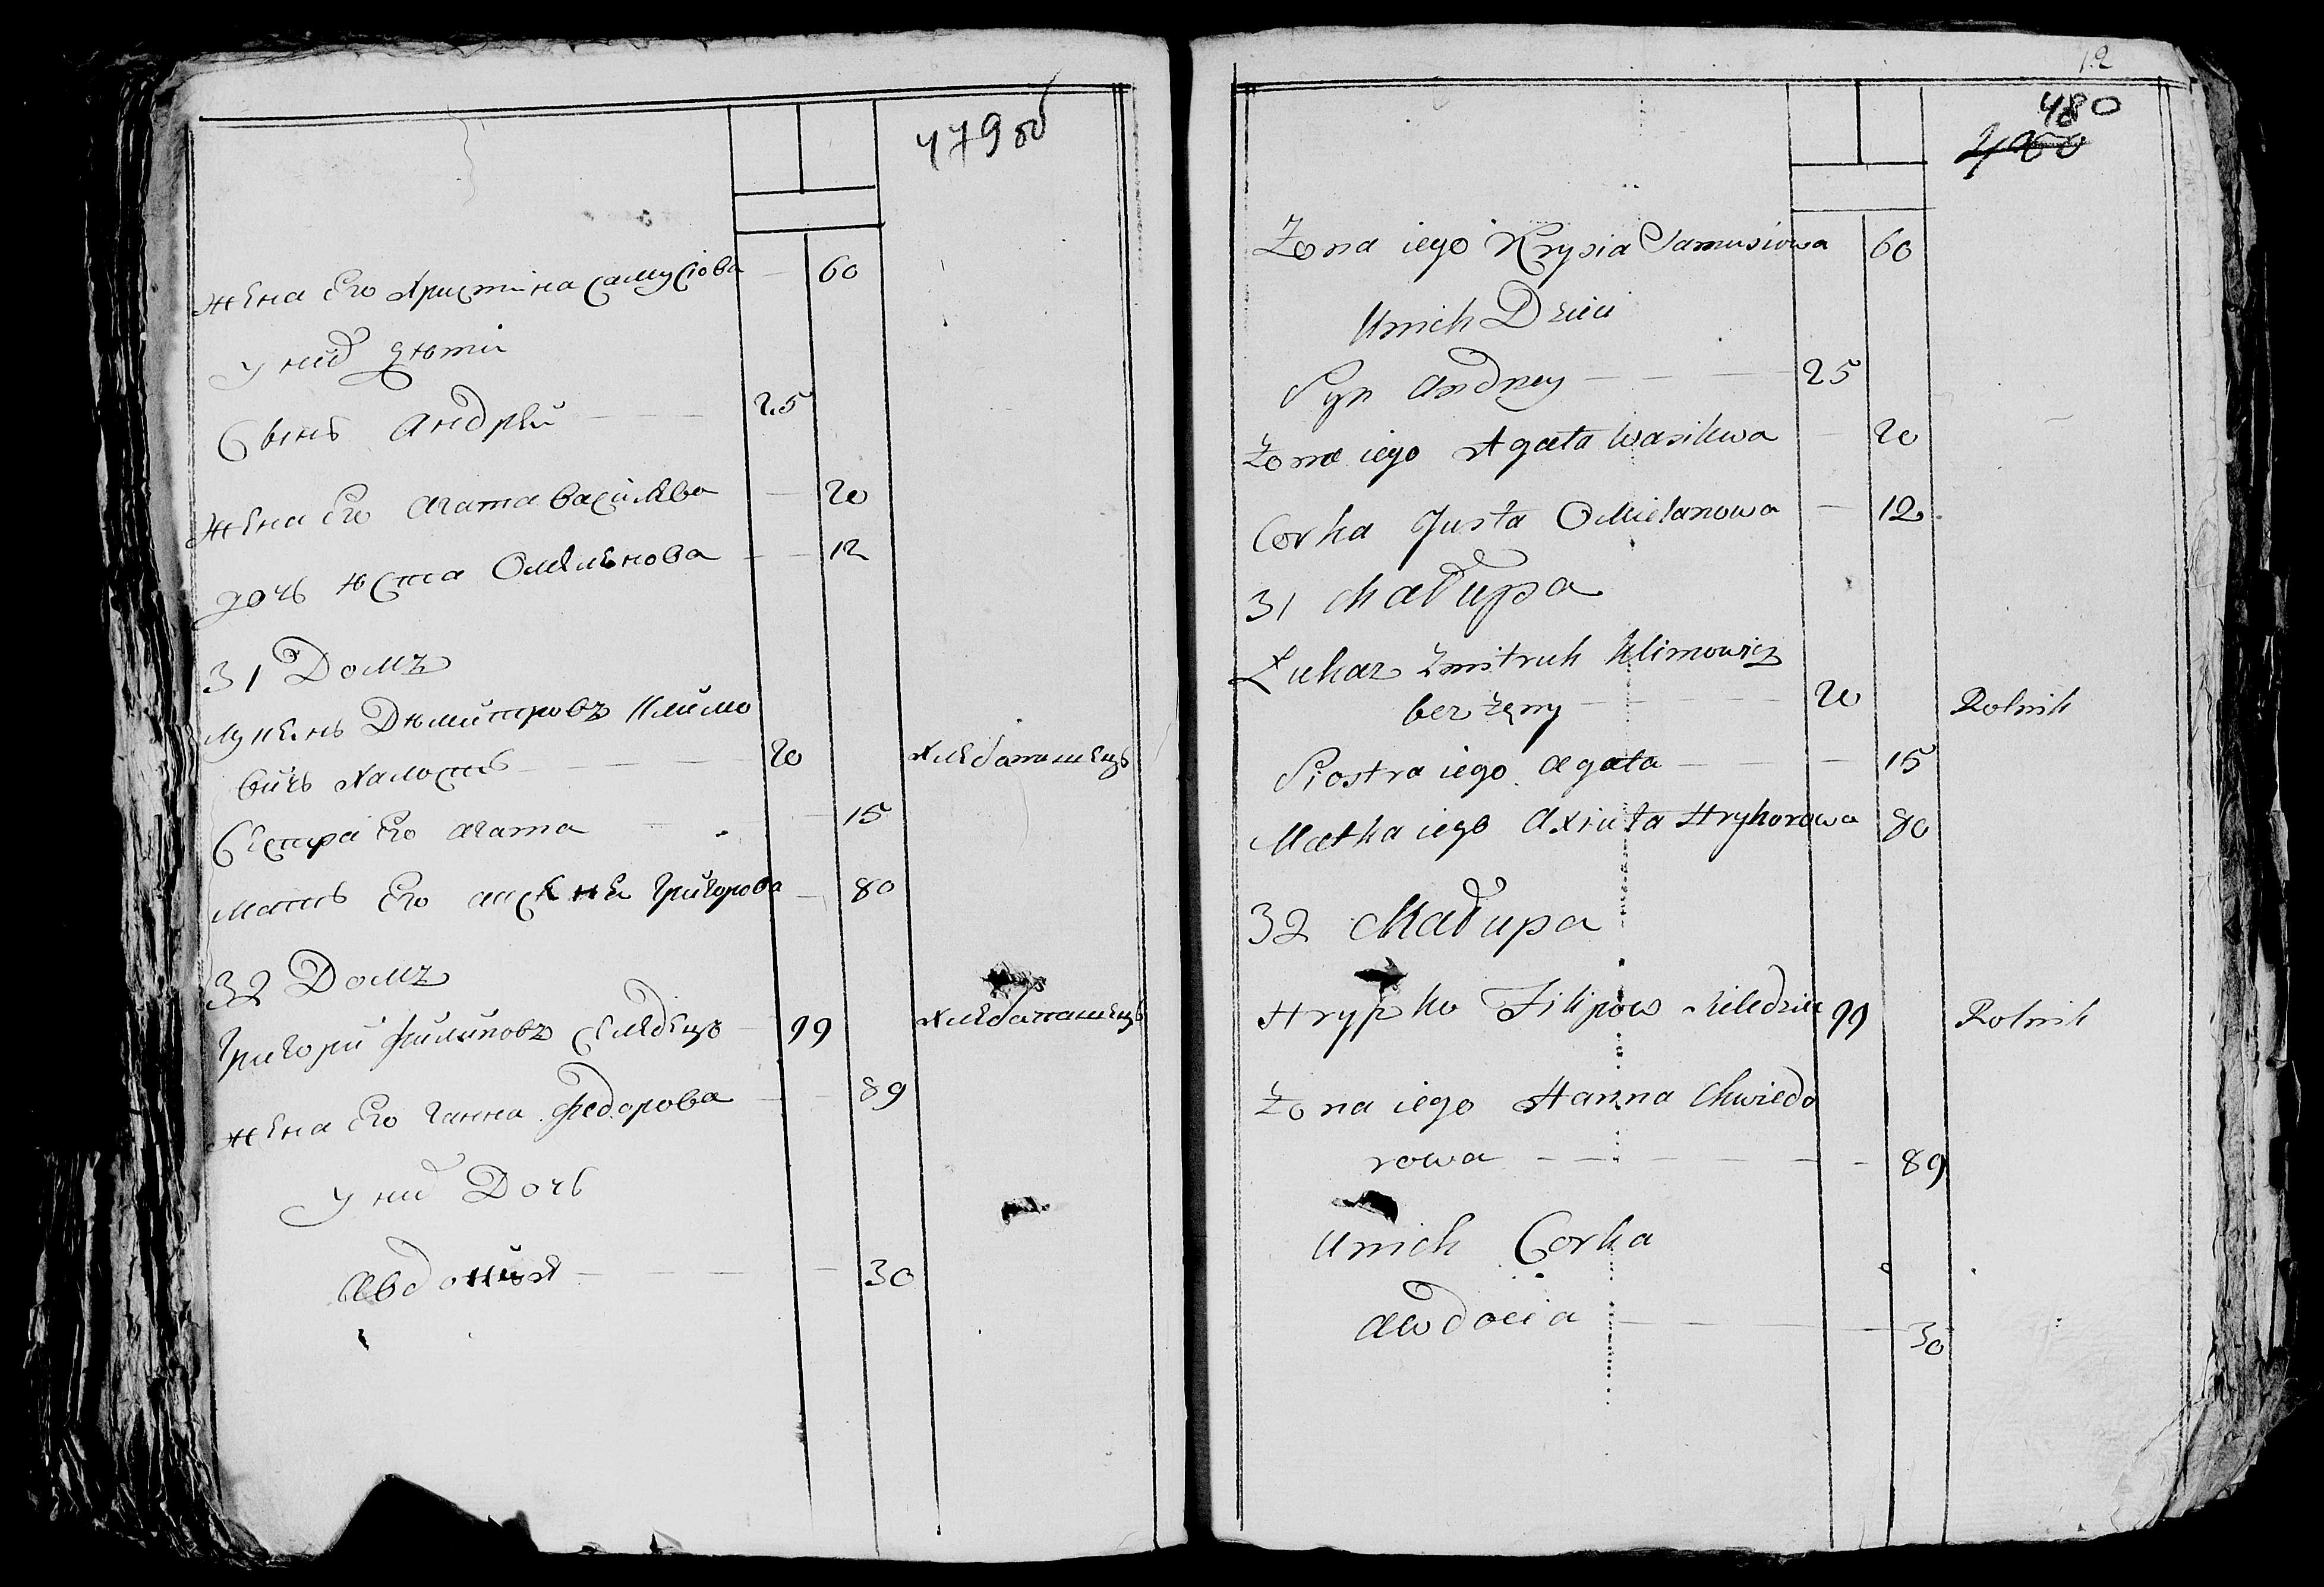 479 об
жена Его Христина самусiова — 60
у них дѣти
Сынъ Андрей — 25
жена Его Агата васильева — 20
дочь юста Омельянова — 12
31 Домъ
Лукянъ Дьмитровъ Климо
вичъ халостъ — 20 хлебопашецъ
Сестра Его Агата — 15
мать Его Григорова — 80
32 Домъ
Григорий Филиповъ селедецъ — 99 хлебопашецъ
жена Его Ганна Федорова — 89
у них Дочь
Авдотия — 30
12
480
Zona iego Krysia Samusiowa 60
Unich Dzieci
Syn Andrzey — 25
Zona iego Agata Wasilewa — 20
Corka Justa Omielanowa — 12
31 Chałupa
Łukasz Zmitruk Klimowicz
bez żeny — 20 Rolnik
Siostra iego Agata — 15
Matka iego Axiuta Hryhorowa 80
32 Chałupa
Hryszko Filipow Sieledziec 99 Rolnik
Zona iego Hanna Chwiedo
rowa — 89
Unich Corka
Awdocia — 30